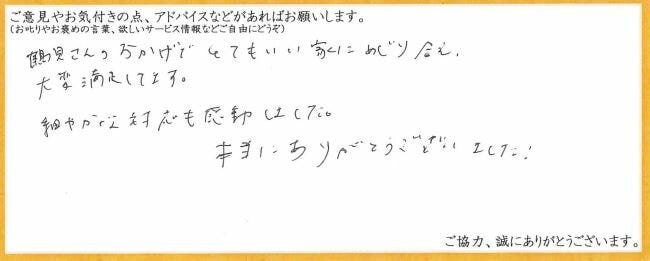 ご意見やお気付きの点、アドバイスなどがあればお願いします。
(お叱りやお褒めの言葉、欲しいサービス情報などご自由にどうぞ)
鶴見さんのおかげでとてもいい家にめぐり合え、
大変満足してます。
細やかな対応も感動しました。
本当にありがとうございました!
ご協力、誠にありがとうございます。